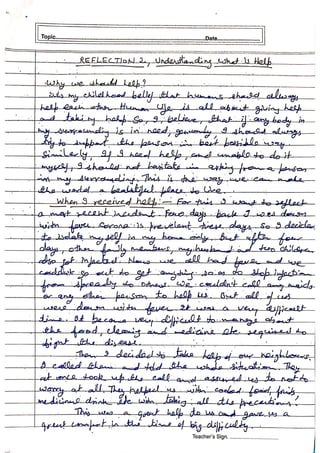 Topic Date
REFLECTION 2, Understanding what is Help
Why we should help?
Its my childhood belief that humans should always
help each other. Human life is all about giving help
and taking help. So, I, believe, that if any body in
my surrounding is in need, genuinely I should always
try to support the person in best possible way.
Similarly, If I need help, and unable to do it
myself, I should not hasitate in asking from a person
in my surrounding. This is the way we can make
the world a beautiful place to live.
When I received help:- For this I want to reflect
a most recent incident. Few days back I was down
with fever. Corona is prevelent these days. So I decided
to isolate my self in my home only. But after four
day, other family members, my husband and two children
also got infected. Now we all had fever and we
couldn't go out to get anything so as to stop infection
from spreading to others. We couldn't call any maids
or any other person to help us. But all of us
were down with fever. It was a very difficult
time. It became very difficult to manage about
the food, cleaning and medicine etc required to
fight the disease.
Then I decided to take help of our neighbours.
I called them and told the whole situation. They
at once took up the call and assured us to not to
worry at all. They helped us with cooked food, fruits
medicine drink etc with taking all the precautions!
This was a great help to us and gave us a
great comfort in the time of big difficulty.
Teacher's Sign.